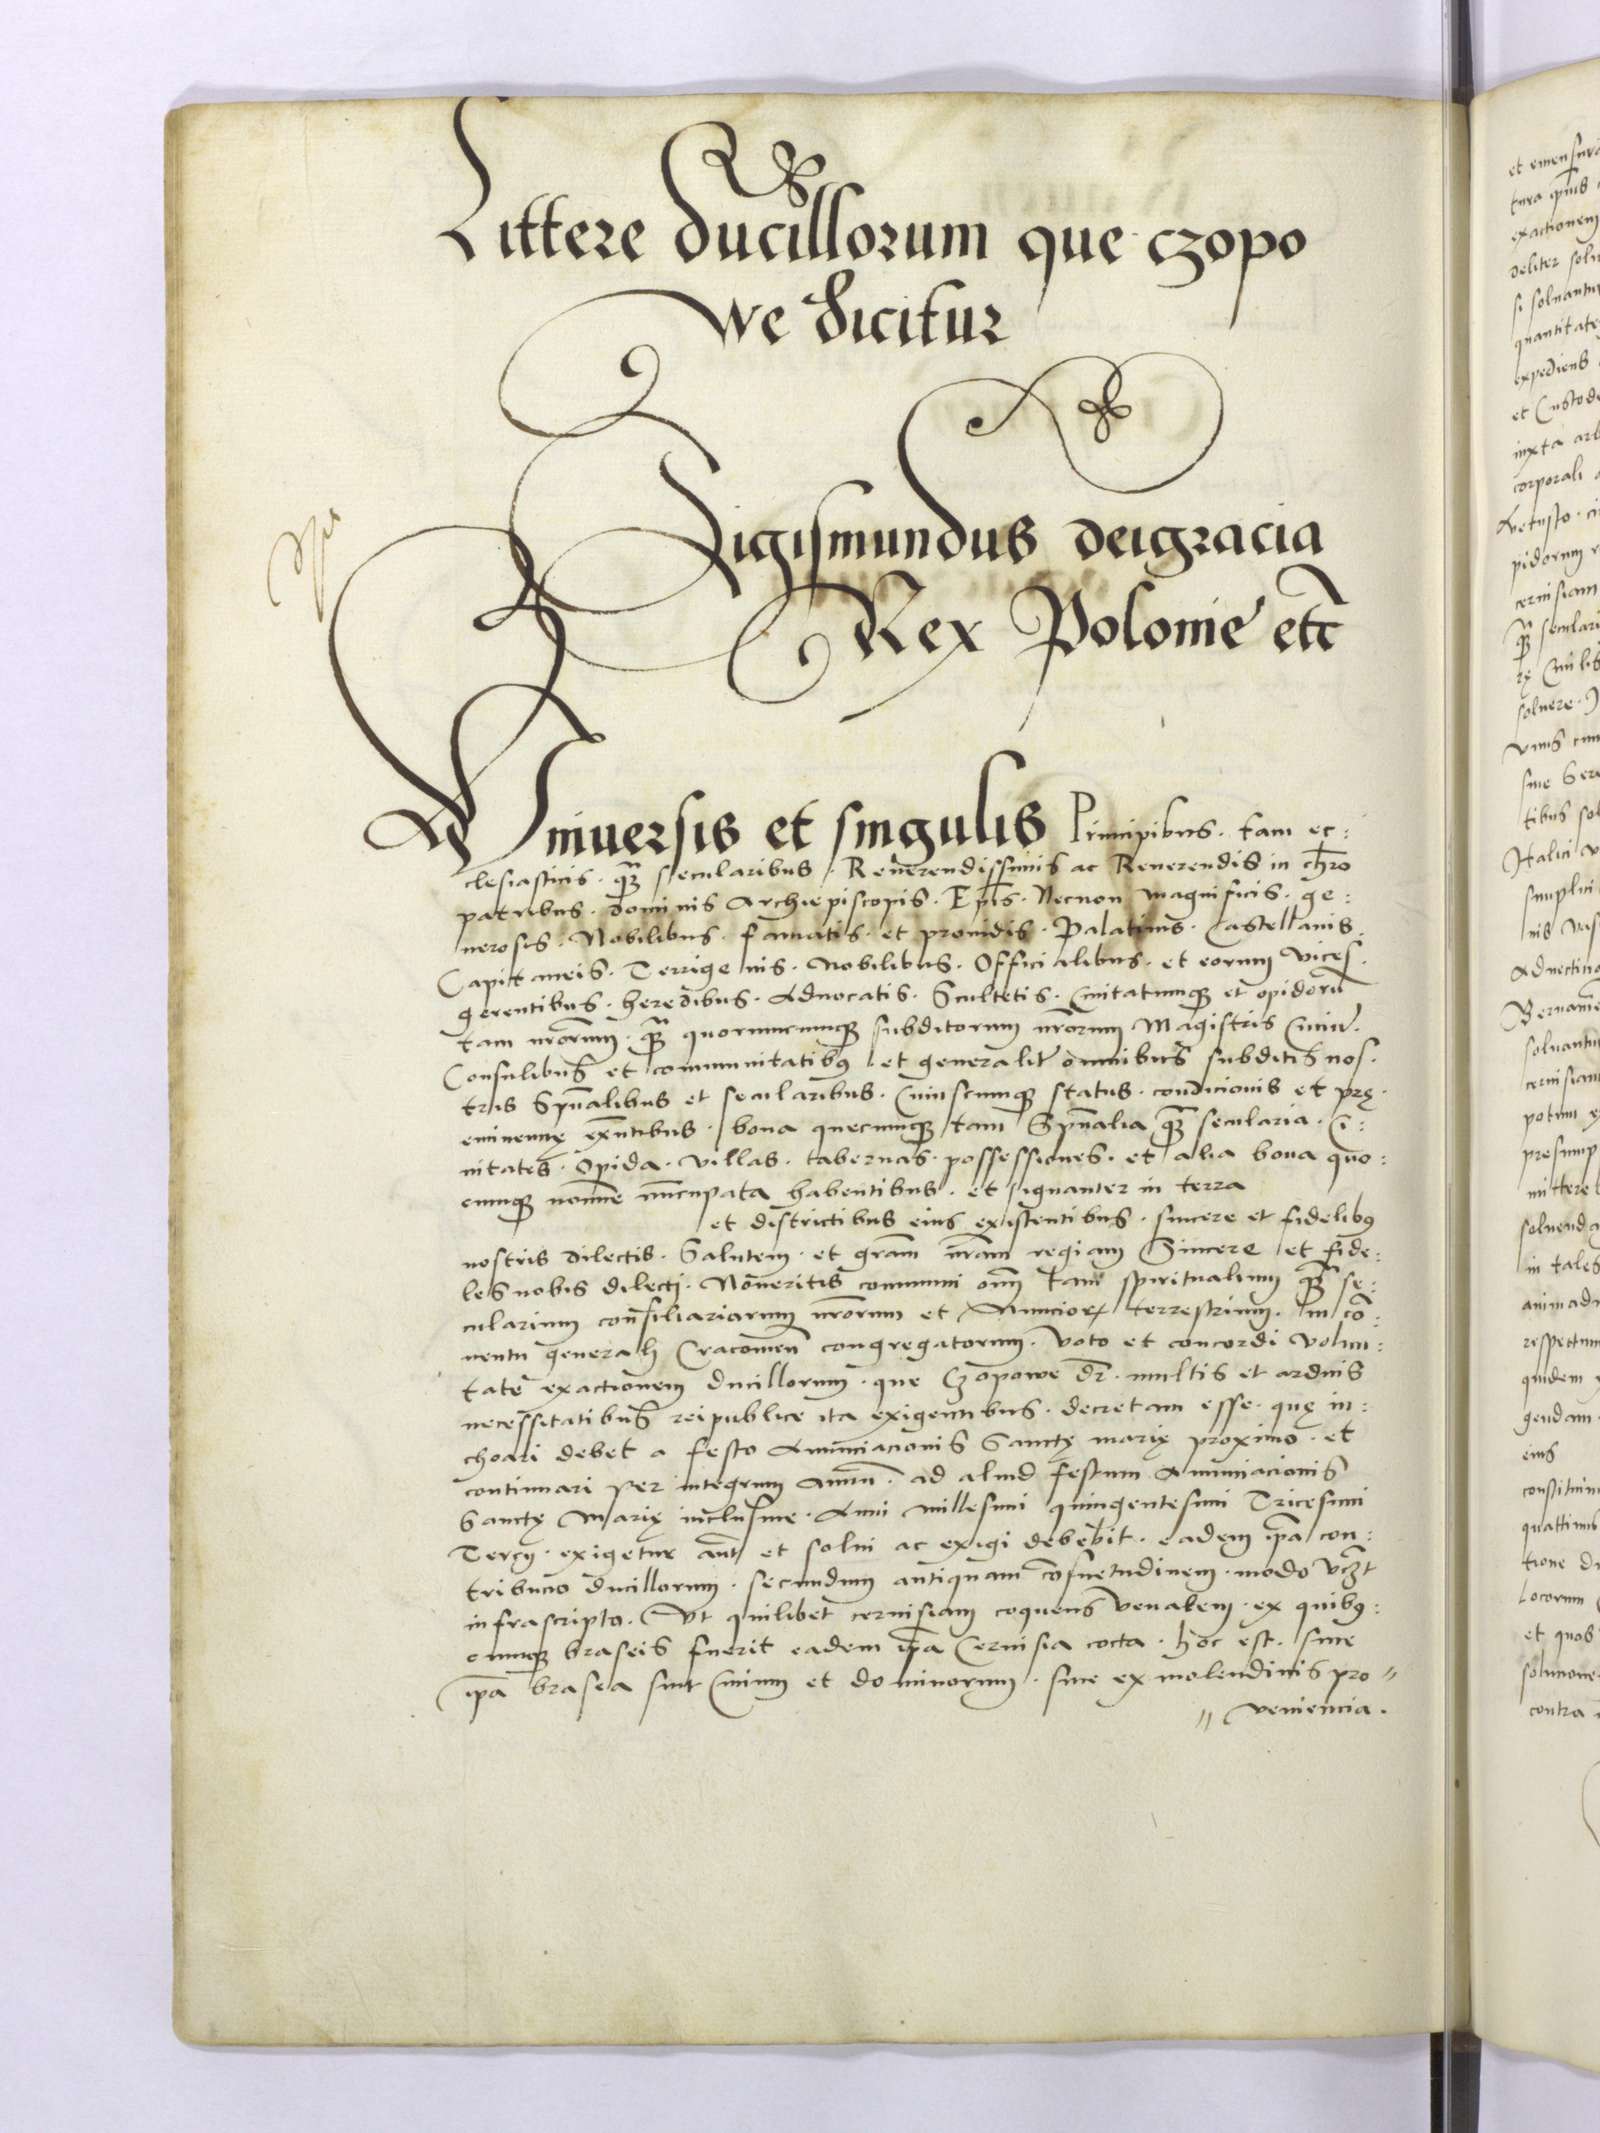 Littere ducillorum que czopo
we dicitur
Sigismundus deigracia
Rex Polonie etc
Universis et singulis Principibus · tam ec:
clesiasticis · qȝ secularibus · Reuerendissimis ac Reuerendis in chr̄o
patribus · dominis Archiepiscopis · Ep̄is · Necnon magnificis · ge:
nerosis · Nobilibus · famatis · et prouidis · Palatinis · Castellanis ·
Capitaneis · Terrigenis · Nobilibus · Officialibus · et eorum vices ·
gerentibus · heredibus · Aduocatis · Scultetis · Ciuitatumqȝ et opidorū
tam nr̄orum · qȝ quorumcumqȝ subditorum nr̄orum Magistris Ciuiū ·
Consulibus et communitatibꝯ et generalit̄ omnibus subditis nos ·
tris Sp̄ualibus et secularibus · Cuiuscumqȝ status · condicionis et prę ·
eminencię exn̄tibus · bona quecumqȝ tam Sp̄ualia qȝ secularia · Ci:
uitates · Opida · villas · tabernas · possessiones · et alia bona quo:
cumqȝ nomine nuncupata habentibus · et signanter in terra
et districtibus eius existentibus · sincere et fidelibꝯ
nostris dilectis · Salutem · et gram̄ nr̄am regiam Sincere et fide:
les nobis dilecti · Noueritis communi om̄ tam spiritualium qȝ se:
cularium consiliariorum nr̄orum et Nuncioꝝ terrestrium · in cō:
uentu generali Cracouien̄ congregatorum · voto et concordi volun:
tate exactionem ducillorum · que Czopowe dr̄ · multis et arduis
necessitatibus reipublice ita exigentibus · decretam esse · quę in:
choari debet a festo Annunciacionis Sanctę marię proximo · et
continuari per integrum annū · ad aliud festum Annunciacionis
Sanctę Marię inclusiue · Anni millesimi quingentesimi Tricesimi
Tercij · exigetur aūt et solui ac exigi debebit · eadem ip̄a con:
tribucio ducillorum · secundum antiquam cōsuetudinem · modo vcȝt
infrascripto · Vt quilibet ceruisiam coquens venalem · ex quibꝯ:
cumqȝ braseis fuerit eadem ip̄a Ceruisia cocta · hoc est · siue
ip̄a brasea sint Ciuium et dominorum · siue ex molendinis pro〃
〃 veniencia ·